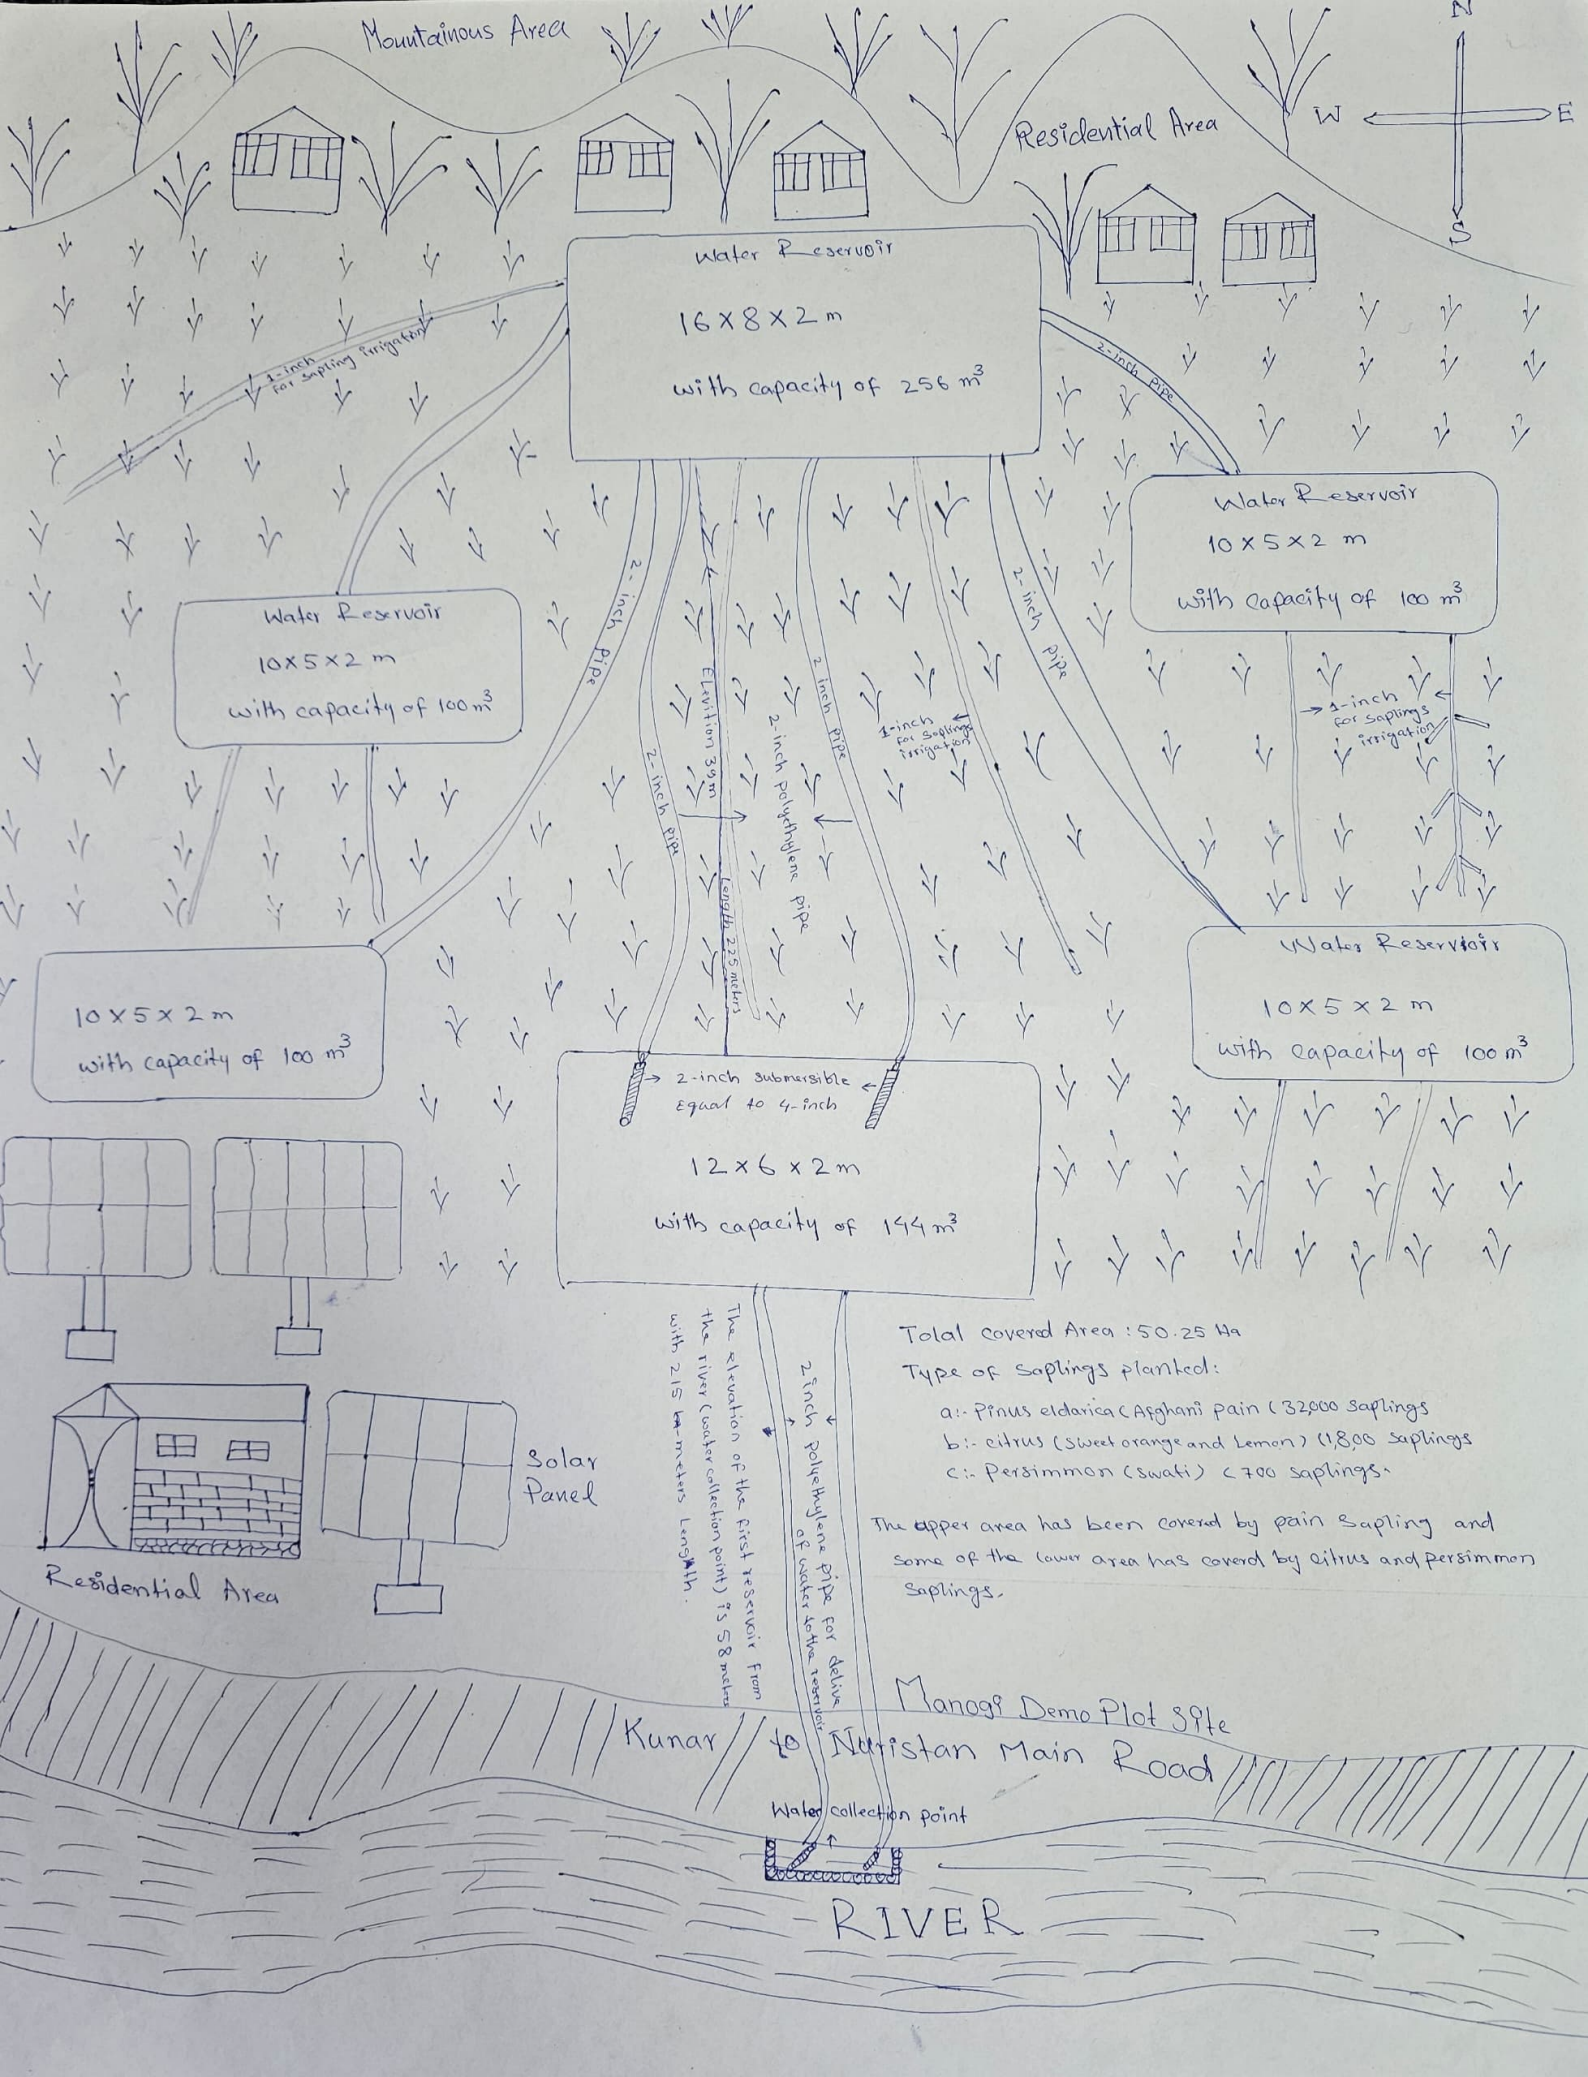 Mountainous Area
N
W
E
S
Residential Area
Water Reservoir
16 X 8 X 2 m
with capacity of 256 m³
1-inch
for sapling irrigation
2-inch pipe
Water Reservoir
10 X 5 X 2 m
with capacity of 100 m³
Water Reservoir
10 X 5 X 2 m
with capacity of 100 m³
2-inch pipe
2-inch pipe
Elevition 39m
Length 225 meters
2-inch polyethylene pipe
2 inch pipe
1-inch
for saplings
irrigation
2-inch pipe
1-inch
for saplings
irrigation
10 X 5 X 2 m
with capacity of 100 m³
Water Reservioir
10 X 5 X 2 m
with capacity of 100 m³
2-inch submersible
Equal to 4-inch
12 x 6 x 2 m
with capacity of 144 m³
The elevation of the first reservoir from
the river (water collection point) is 58 meters
with 215 meters Length.
2 inch polyethylene pipe for delive
of water to the reservoir
Total covered Area : 50.25 Ha
Type of saplings planted:
a:- Pinus eldarica (Afghani pain ( 32,000 saplings
b:- citrus (sweet orange and Lemon) (1,800 saplings
c:- Persimmon (swati) ( 700 saplings.
The upper area has been covered by pain sapling and
some of the lower area has coverd by citrus and persimmon
saplings.
Solar
Panel
Residential Area
Manogi Demo Plot Site
Kunar to Nuristan Main Road
Water collection point
RIVER